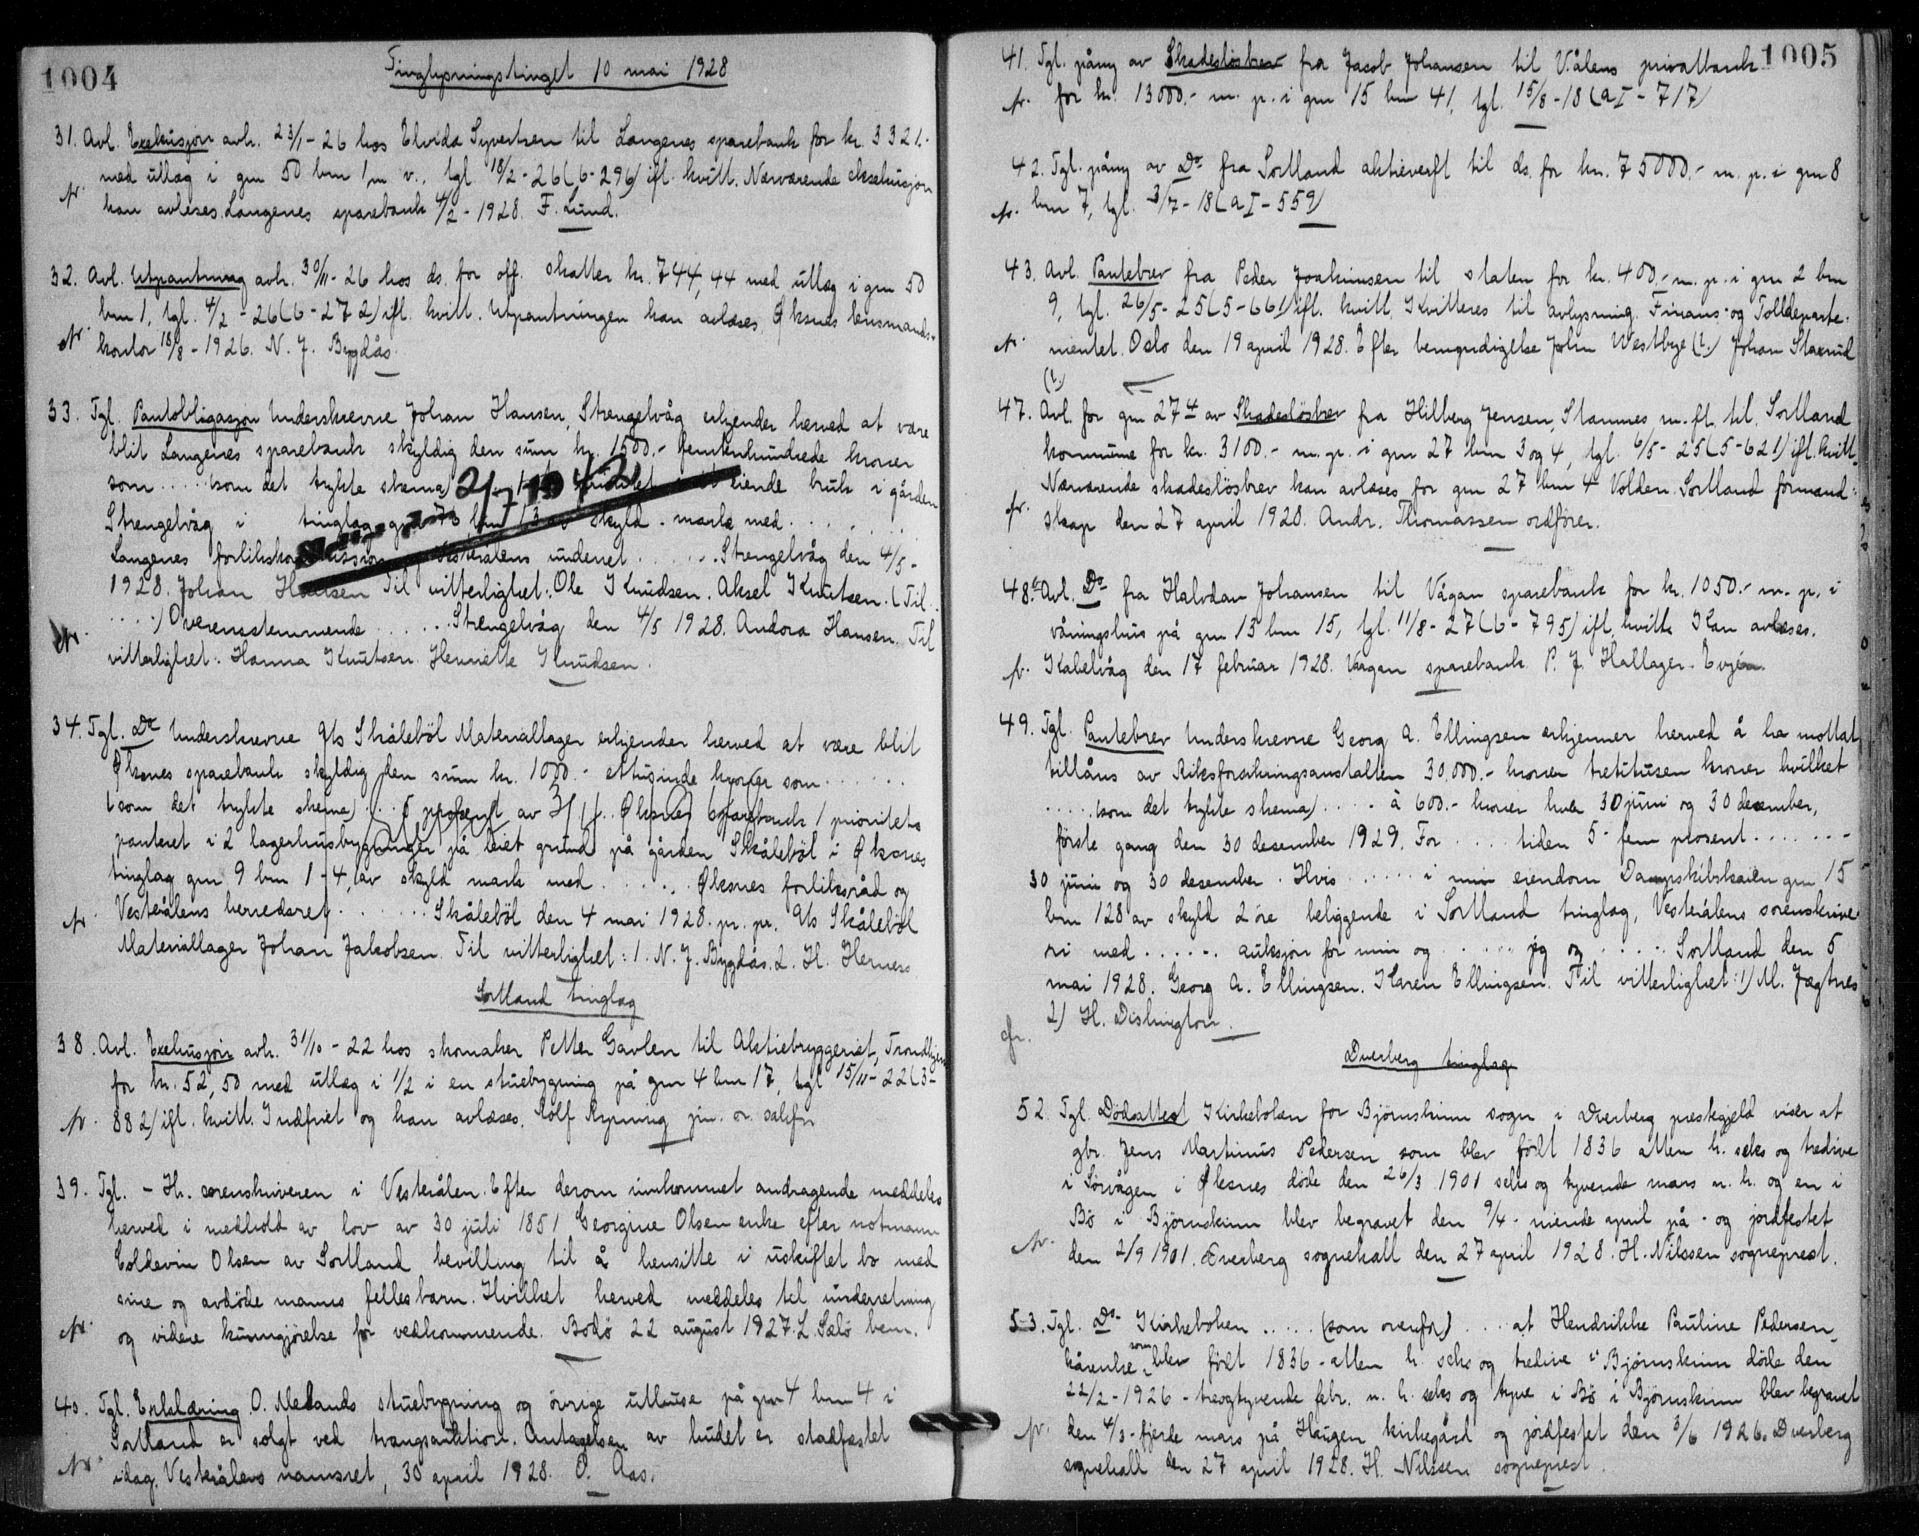 1004
Tinglysningstinget 10 mai 1928
31. Avl. Exekusjon avh. 23/1-26 hos Elvida Syvertsen til Langenes sparebank for kr. 3321.-
med utlæg i gnr 50 bnr 1 m v., tgl 18/2-26 (6-296) ifl. kvitt. Nærværende eksekusjon
kan avleses. Langenes sparebank 4/2-1928. F. Lund.
32. Avl. Utpantning avh. 30/11-26 hos ds. for off. skatter kr. 744,44 med utlæg i gnr 50
bnr 1, tgl. 4/2-26 (6-272) ifl. kvitt. Utpantningen kan avlæses. Øksnes lensmands-
kontor 18/8-1926. N. J. Bygdås.
33. Tgl. Pantobligasjon Underskrevne Johan Hansen, Strengelvåg erkjender herved at være
blit Langenes sparebank skyldig den sum kr. 1500.- femtenhundrede kroner
som ..... (som det trykte skema) 21/7-1942 eiende bruk i gården
Strengelvåg i tinglag gnr 73 bnr 13 av skyld - mark med . . . .
Langenes forlikskommission og Vesterålens underret . . . . . . Strengelvåg den 4/5-
1928. Johan Hansen Til vitterlighet: Ole Knudsen. Aksel Knutsen. (Til
....) Overensstemmende . . . . . . Strengelvåg den 4/5 1928. Andora Hansen. Til
vitterlighet: Hanna Knutsen. Henriette Knudsen.
34. Tgl. Do Underskrevne A/s Skåleböl Materiallager erkjender herved at være blit
Øksnes sparebank skyldig den sum kr. 1000.- ettusinde kroner som . . . . . . .
(som det trykte skema) . . . 6 prosent av . . . Øksnes sparebank 1 prioritets
panteret i 2 lagerhusbygninger på leiet grund på gården Skåleböl i Øksnes
tinglag gnr 9 bnr 1-4, av skyld mark med . . . . . . Øksnes forliksråd og
Vesterålens herredsret . . . . . . . Skåleböl den 4 mai 1928. pr. pr. A/s Skåleböl
Materiallager Johan Jakobsen. Til vitterlighet: 1. N. J. Bygdås. 2. H. Hernes
Sortland tinglag
38. Avl. Exekusjon avh. 31/10-22 hos skomaker Petter Gavlen til Aktiebryggeriet, Trondhjem
for kr. 52,50 med utlæg i 1/2 i en stuebygning på gnr 4 bnr 17, tgl 15/11-22 (3-
882) ifl. kvitt. Indfriet og kan avlæses. Rolf Ryning jur. o.
39. Tgl. - Hr. sorenskriveren i Vesterålen. Efter derom innkommet andragende meddeles
herved i medhold av lov av 30 juli 1851 Georgine Olsen enke efter notmann
Coldevin Olsen av Sortland bevilling til å hensitte i uskiftet bo med
sine og avdöde manns fellesbarn. Hvilket herved meddeles til underretning
og videre kunngjörelse for vedkommende. Bodö 22 august 1927. L. Salö bem.
40. Tgl. Erklæring. O. Medlands stuebygning og övrige uthuse på gnr 4 bnr 4 i
Sortland er solgt ved tvangsauktion. Antagelsen av budet er stadfæstet
idag. Vesterålens namsret, 30 april 1928. O. Aas.
1005
41. Tgl. påny av Skadeslösbrev fra Jacob Johansen til V.ålens privatbank
for kr. 13000.- m. p. i gnr 15 bnr 41, tgl. 15/8-18 (a I-717)
42. Tgl. påny av Do fra Sortland aktieverft til ds. for kr. 75000.- m. p. i gnr 8
bnr 7, tgl. 3/7-18 (a I-559)
43. Avl. Pantebrev fra Peder Joakimsen til staten for kr. 400.- m. p. i gnr 2 bnr
9, tgl. 26/5-25 (5-661) ifl. kvitt. Kvitteres til avlysning. Finans- og Tolldeparte-
mentet. Oslo den 19 april 1928. Efter bemyndigelse John Westbye (?) Johan Staxrud
(?)
47. Avl. for gnr 27 4 av Skadeslösbrev fra Hilberg Jensen, Stamnes m. fl. til Sortland
kommune for kr. 3100.- m. p. i gnr 27 bnr 3 og 4, tgl. 6/5-25 (5-621) ifl. kvitt.
Nærværende skadeslösbrev kan avlæses for gnr 27 bnr 4 Volden. Sortland formand-
skap den 27 april 1928. Andr. Thomassen ordförer.
48. Avl. Do fra Halvdan Johansen til Vågan sparebank for kr. 1050.- m. p. i
våningshus på gnr 13 bnr 15, tgl. 11/8-27 (6-795) ifl. kvitt. Kan avlæses.
Kabelvåg den 17 februar 1928. Vaagan sparebank. P. J. Hallager. Evjen
49. Tgl. Pantebrev Underskrevne Georg A. Ellingsen erkjenner herved å ha mottat
tillåns av Riksforsikringsanstalten 30,000.- kroner trettitusen kroner hvilket
. . . . . (som det trykte skema) . . . . . à 600.- kroner hver 30 juni og 30 desember,
förste gang den 30 desember 1929. For . . . . . tiden 5 - fem prosent . . . . . . .
30 juni og 30 desember. Hvis . . . . . . i min eiendom Dampskibskaien gnr 15
bnr 128 av skyld 2 öre beliggende i Sortland tinglag, Vesterålens sorenskrive-
ri med . . . . . . auksjon for min og . . . . . jeg og . . . . . . Sortland den 5
mai 1928. Georg A. Ellingsen. Karen Ellingsen. Til vitterlighet: 1) M. Jægtnes
2) H. Dishington.
Dverberg tinglag
52. Tgl. Dödsattest Kirkeboken for Björnskinn sogn i Dverberg prestegjeld viser at
gbr. Jens Martinus Pedersen som blev född 1836 atten h. seks og tredive
i Sörvågen i Øksnes döde den 26/3 1901 seks og tyvende mars n. h. og en i
Bö i Björnskinn blev begravet den 9/4 - niende april på - og jordfestet
den 2/9 1901. Dverberg sognekall den 27 april 1928. H. Nilssen sogneprest.
53. Tgl. Do Kirkeboken . . . . . (som ovenfor) . . . . at Hendrikke Pauline Pedersen,
kårenke, som blev född 1836 - atten h. seks og tredive i Björnskinn döde den
22/2-1926 - toogtyvende febr. n. h. seks og tyve i Bö i Björnskinn blev begravet
den 4/3 - fjerde mars på Haugen kirkegård og jordfestet den 3/6 1926. Dverberg
sognekall den 27 april 1928. H. Nilssen sogneprest.